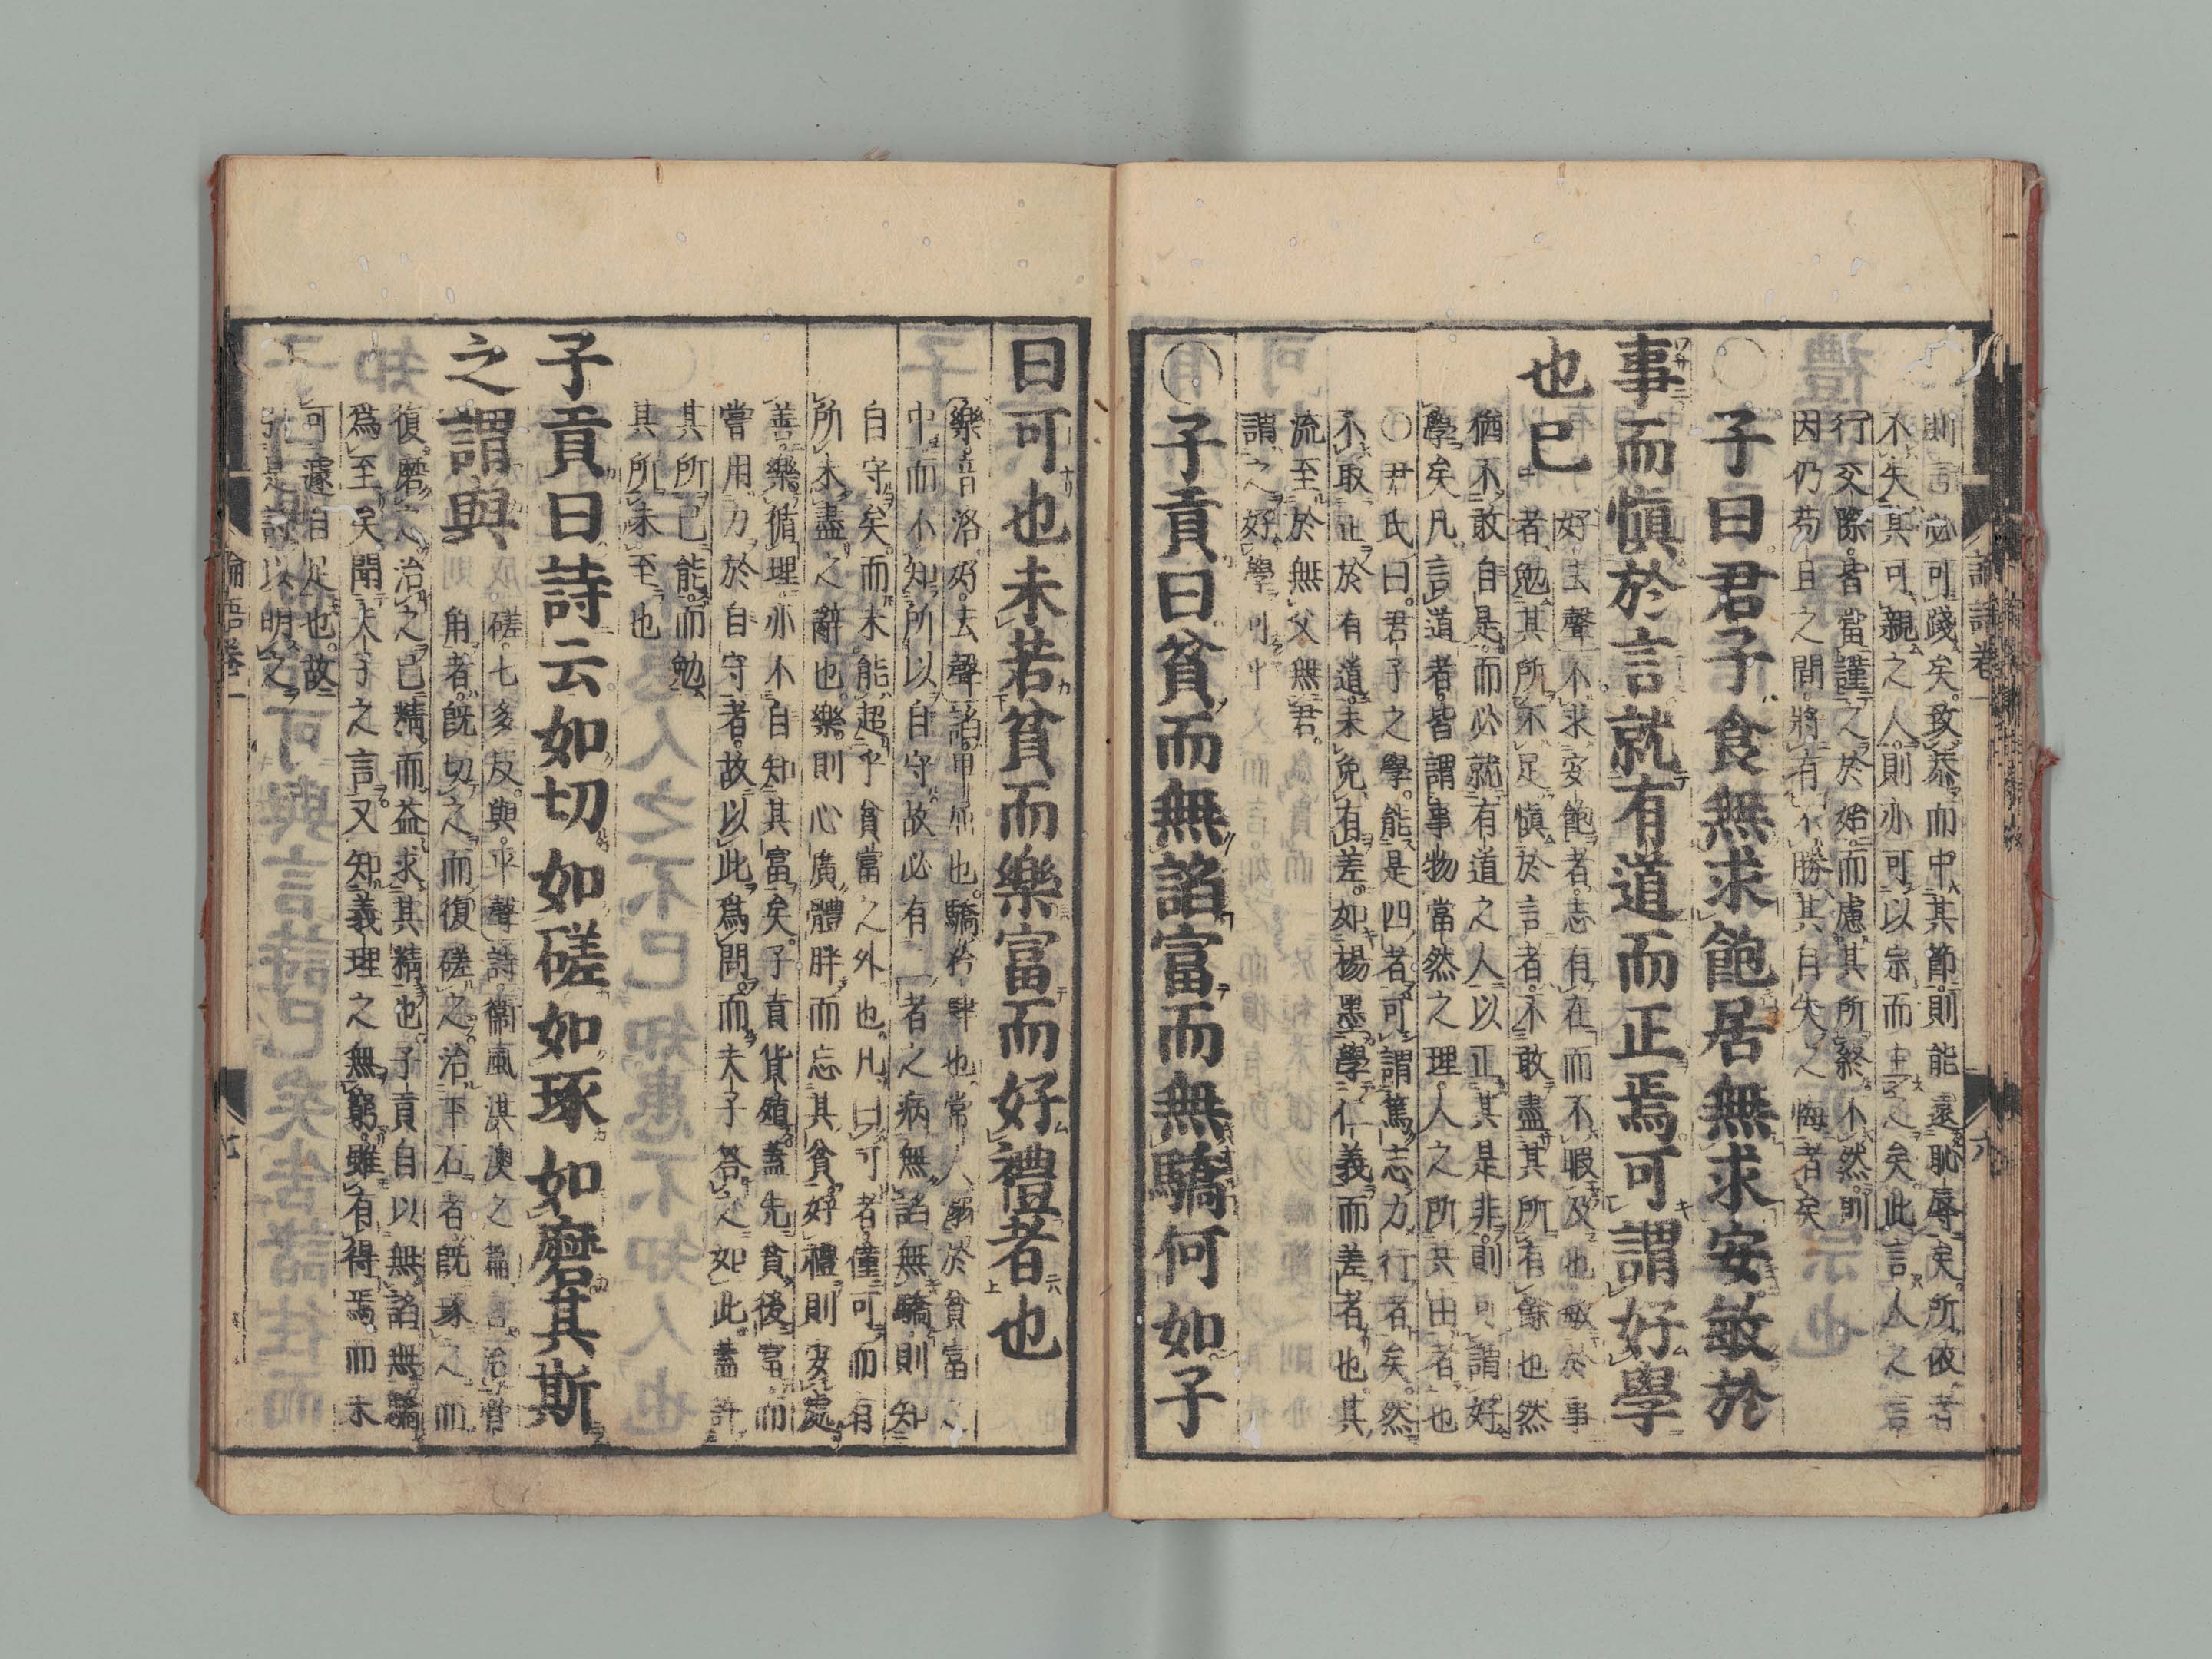 則言必可踐矣。致恭而中其節。則能遠恥辱矣。所依者
不失其可親之人。則亦可以宗而主之矣。此言人之言
行交際。皆當謹之於始。而慮其所終。不然。則
因仍苟且之間。將有不勝其自失之悔者矣
子曰。君子食無求飽居無求安敏於
事而慎於言就有道而正焉可謂好學
也已
好去聲不求安飽者。志有在而不暇及也敏於事
者。勉其所不足慎於言者。不敢盡其所有餘也然
猶不敢自是。而必就有道之人以正其是非。則可謂好
學矣凡言道者。皆謂事物當然之理。人之所共由者也
〇尹氏曰。君子之學。能是四者。可謂篤志力行者矣。然
不取正於有道。未免有差。如楊墨學仁義而差者也。其
流至於無父無君。
謂之好學可乎
〇子貢曰。貧而無諂富而無驕何如子
論語卷一
六
曰可也未若貧而樂富而好禮者也
樂音洛。好去聲諂卑屈也。驕矜肆也。常人溺於貧富之
中而不知所以自守故必有二者之病無諂無驕則知
自守矣。而未能超乎貧富之外也。凡曰可者。僅可而有
所未盡之辭也。樂。則心廣體胖而忘其貧。好禮則安處
善樂循理亦不自知其富矣。子貢貨殖。蓋先貧後富。而
嘗用力於自守者。故以此爲問。而夫子答之如此。蓋許
其所已能。而勉
其所未至也
子貢曰詩云如切如磋如琢如磨其斯
之謂與
磋。七多反。與。平聲詩衞風淇澳之篇。言治骨
角者。既切之而復磋之。治玉石者。既琢之而
復磨之。治之已精而益求其精也。子貢自以無諂無驕
爲至矣聞夫子之言。又知義理之無窮。雖有得焉。而未
可遽自足也。故
引是詩以明之
論語卷一
七